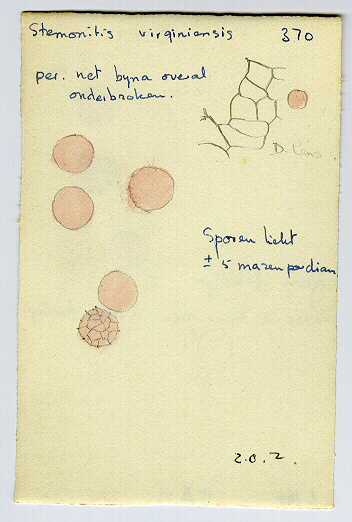 Stemonitis virginiensis 370
per. net byna overal
onderbroken.
D. Lens.
Sporen licht
± 5 mazen per diam
2.0.2.